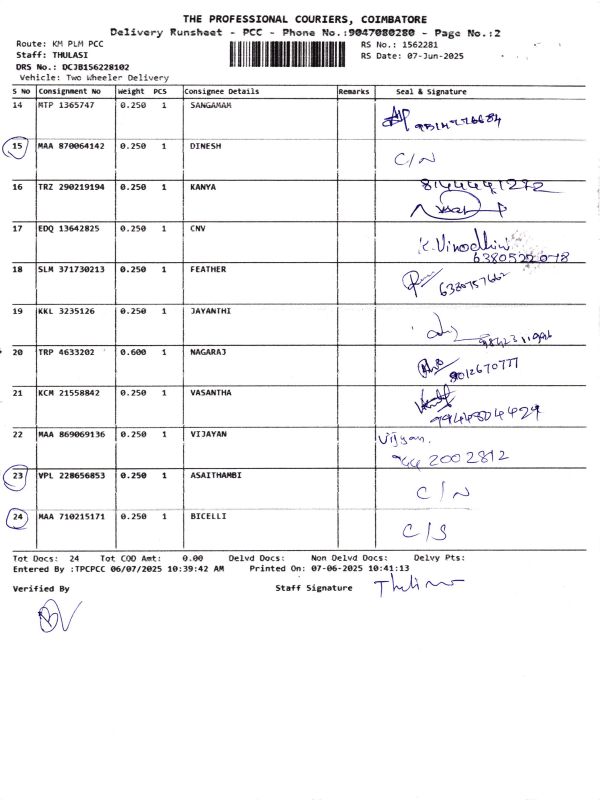 THE PROFESSIONAL COURIERS, COIMBATORE
Delivery Runsheet - PCC - Phone No.:9047080280 - Page No.:2
Route: KM PLM PCC RS No.: 1562281
Staff: THULASI RS Date: 07-Jun-2025
DRS No.: DCJB156228102
Vehicle: Two Wheeler Delivery
S No Consignment No Weight PCS Consignee Details Remarks Seal & Signature
14 MTP 1365747 0.250 1 SANGAMAM
15 MAA 870064142 0.250 1 DINESH C/N
16 TRZ 290219194 0.250 1 KANYA 8144441272
17 EDQ 13642825 0.250 1 CNV K. Vinodhini
6380522078
18 SLM 371730213 0.250 1 FEATHER 6380757662
19 KKL 3235126 0.250 1 JAYANTHI
20 TRP 4633202 0.600 1 NAGARAJ 9012670777
21 KCM 21558842 0.250 1 VASANTHA
9944804429
22 MAA 869069136 0.250 1 VIJAYAN Vijayan.
944 2002812
23 VPL 228656853 0.250 1 ASAITHAMBI C/N
24 MAA 710215171 0.250 1 BICELLI C/S
Tot Docs: 24 Tot COD Amt: 0.00 Delvd Docs: Non Delvd Docs: Delvy Pts:
Entered By :TPCPCC 06/07/2025 10:39:42 AM Printed On: 07-06-2025 10:41:13
Verified By Staff Signature